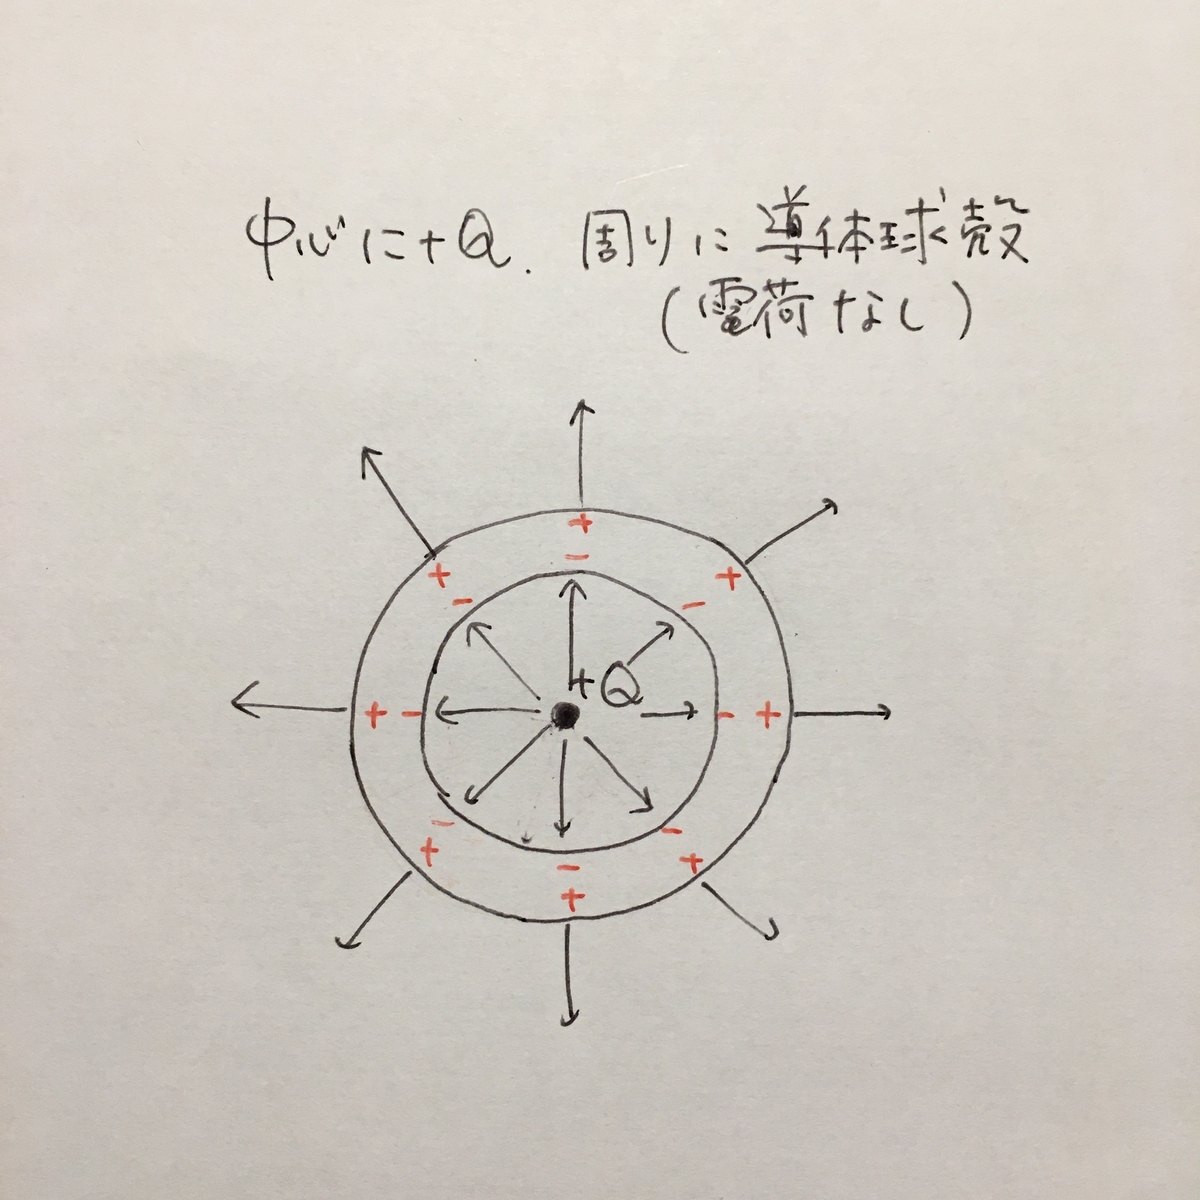 中心に+Q. 周りに導体球殻
(電荷なし)
+
-
+
-
+
-
+Q
+
-
-
+
-
+
-
+
-
+